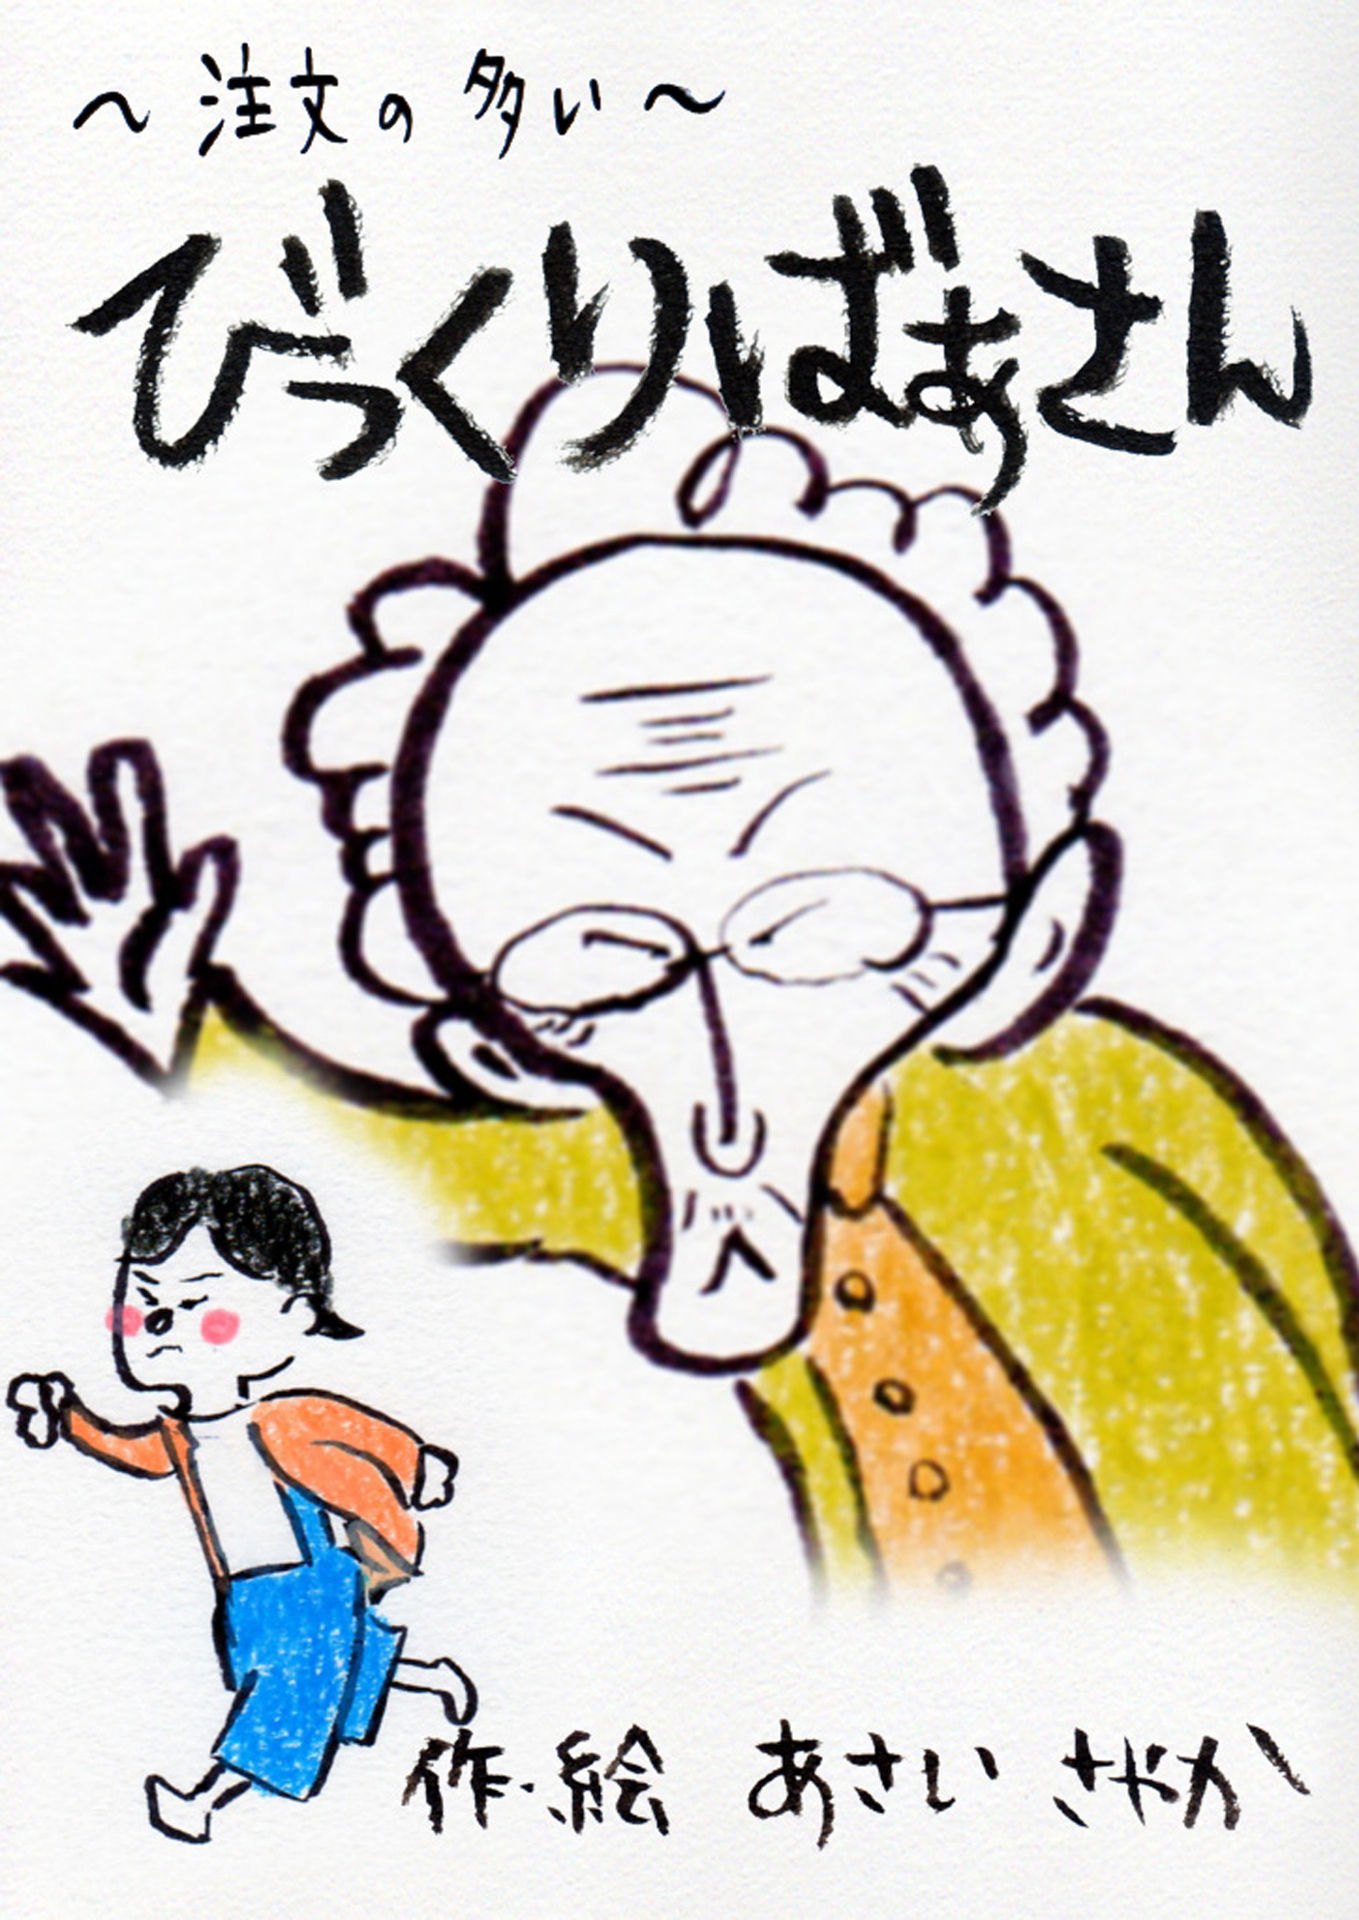 〜注文の多い〜
びっくりばぁさん
作・絵 あさい さやか